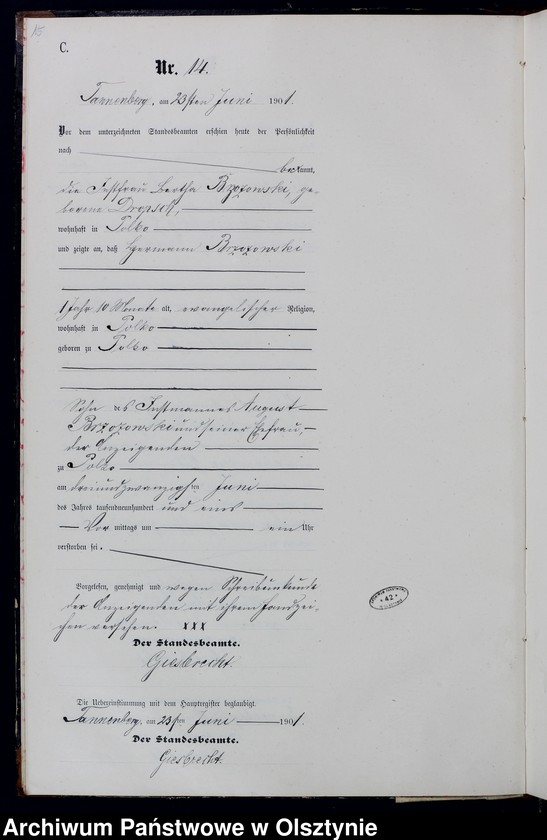 15.
C.
Nr. 14.
Tannenberg, am 23sten Juni 1901.
Vor dem unterzeichneten Standesbeamten erschien heute der Persönlichkeit
nach
bekannt,
die Instfrau Bertha Brzozowski, ge-
borene Dropsch,
wohnhaft in Polko
und zeigte an, daß Hermann Brzozowski
1 Jahr 10 Monate alt, evangelischer Religion,
wohnhaft in Polko
geboren zu Polko
Sohn des Instmannes August
Brzozowski und seiner Ehefrau,
der Anzeigenden
zu Polko
am dreiundzwanzigsten Juni
des Jahres tausendneunhundert und eins
Vor mittags um ein Uhr
verstorben sei.
Vorgelesen, genehmigt und wegen Schreibunkunde
der Anzeigenden mit ihrem Handzei-
chen versehen. XXX
Der Standesbeamte.
Giesbrecht.
42
Die Uebereinstimmung mit dem Hauptregister beglaubigt.
Tannenberg, am 23sten Juni 1901.
Der Standesbeamte.
Giesbrecht.
Archiwum Państwowe w Olsztynie